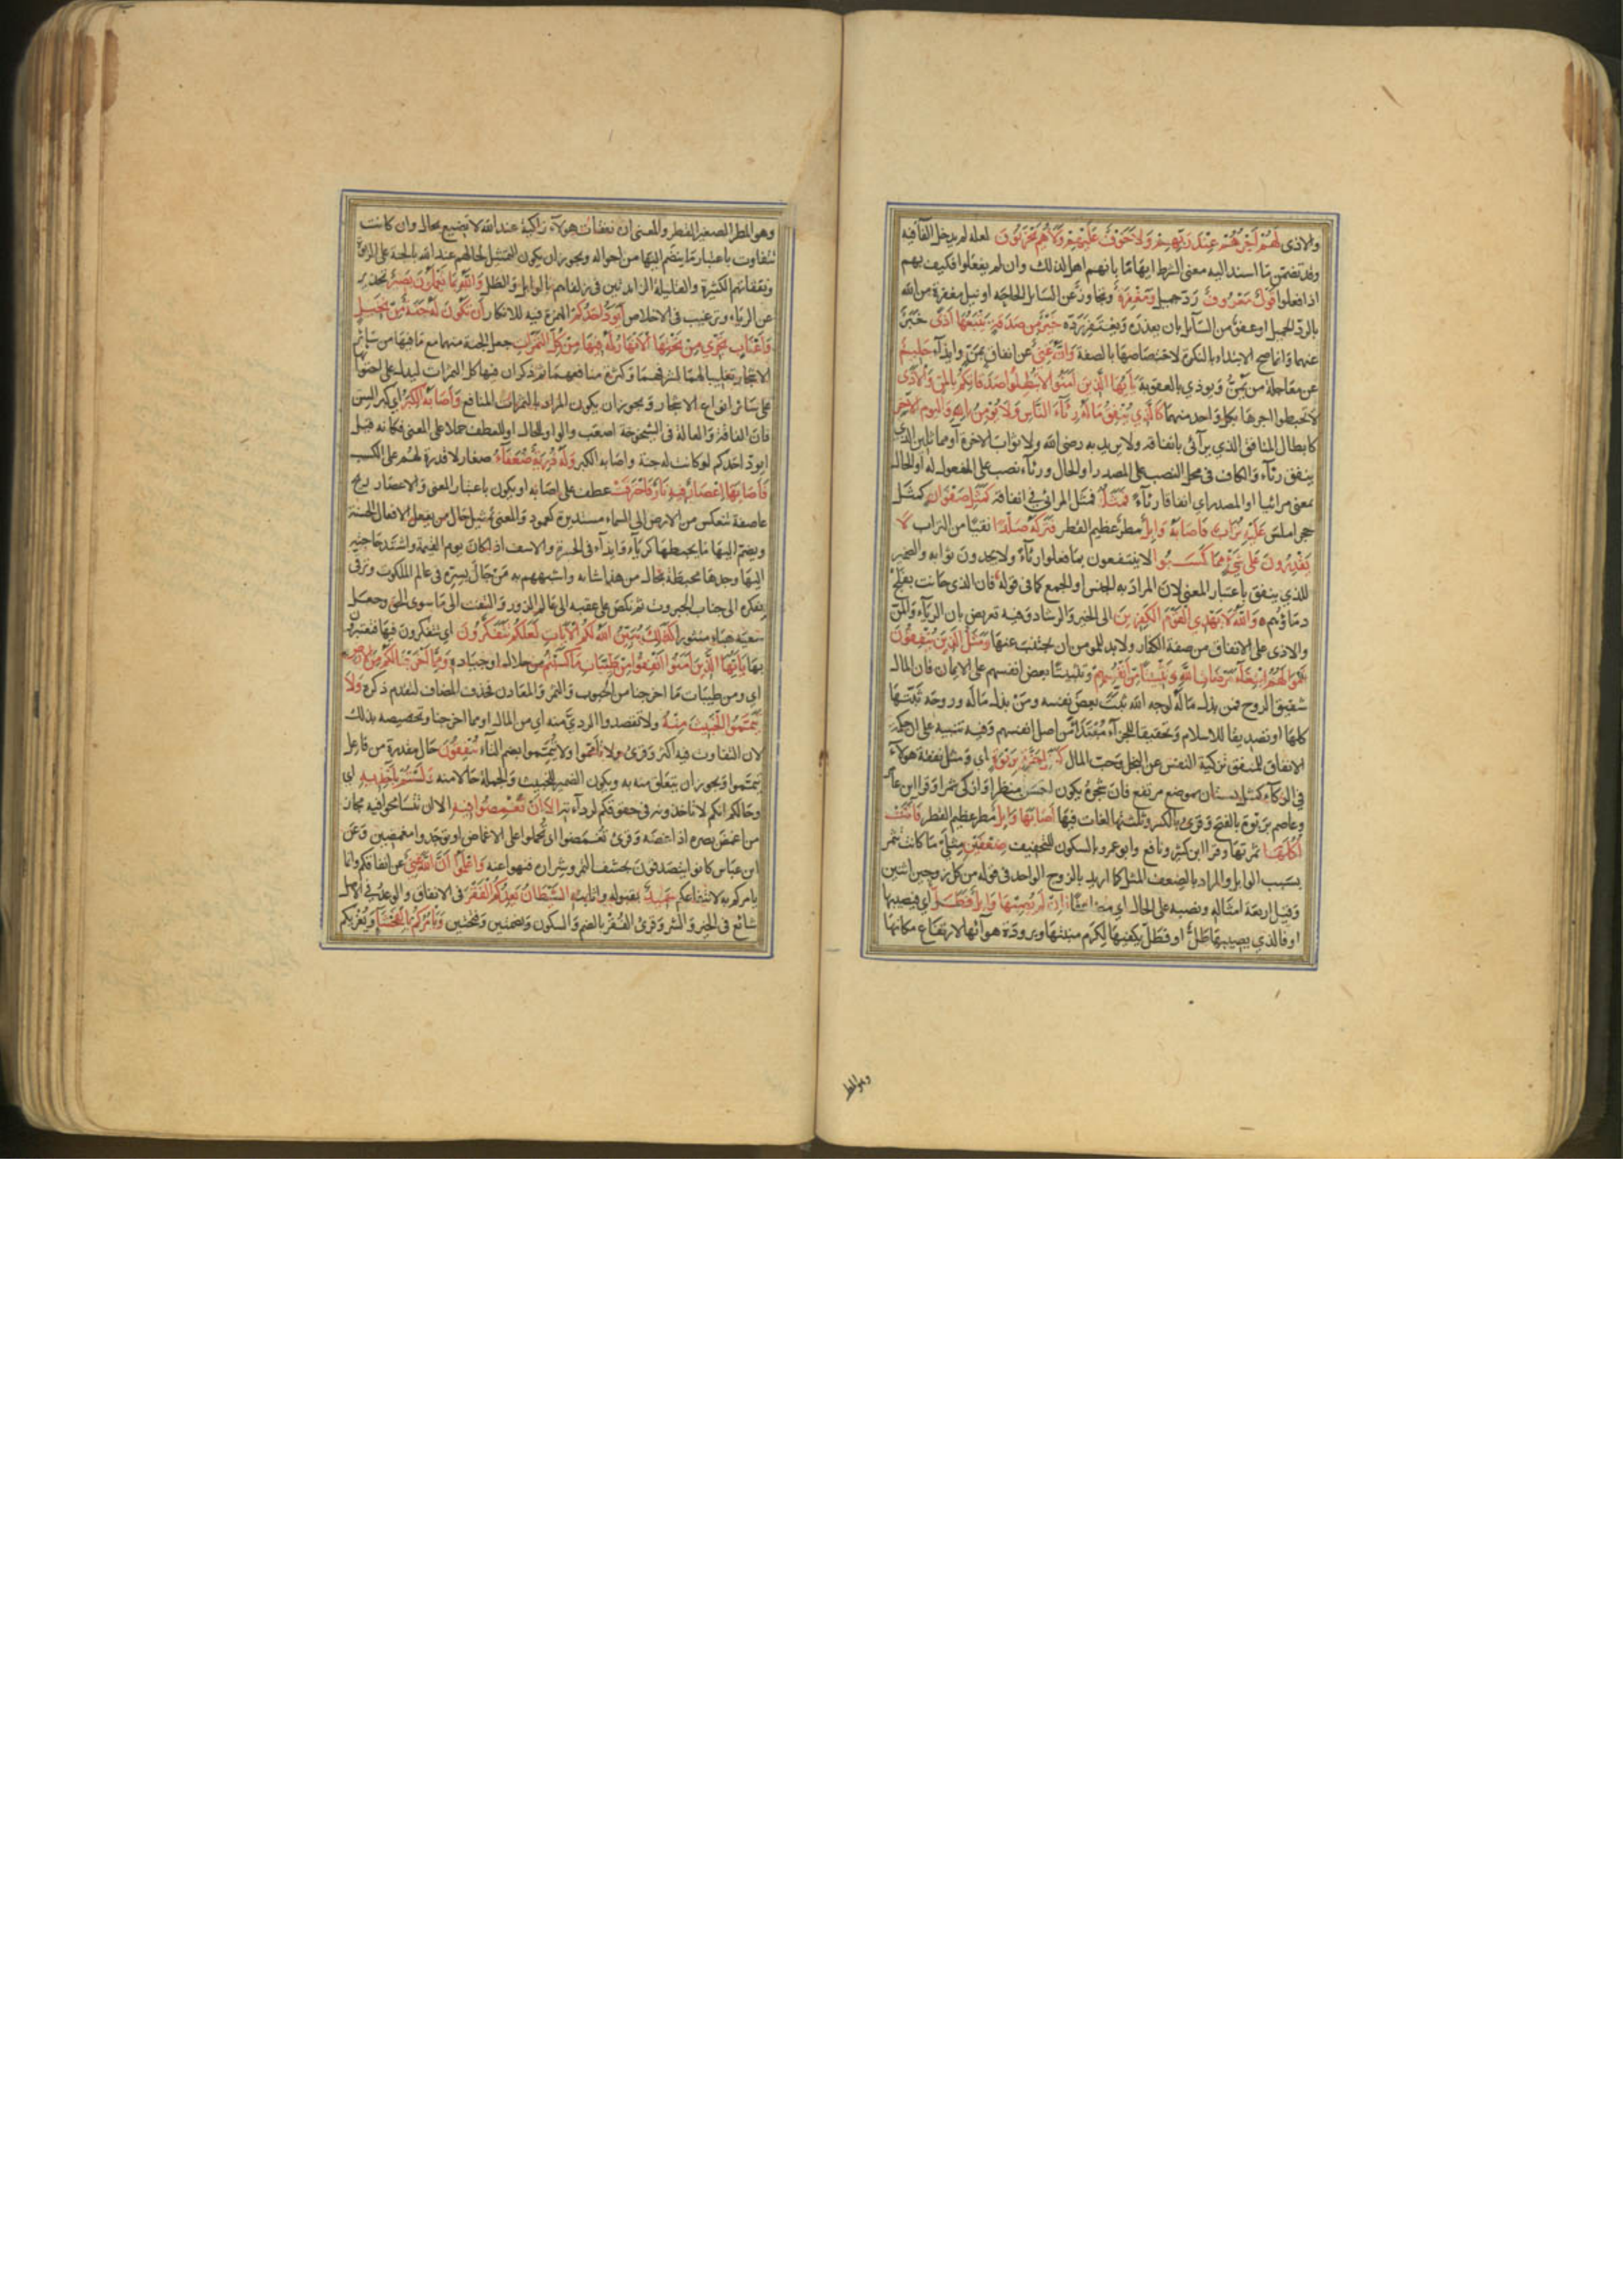 والاذى لَهُمْ اَجْرُهُمْ عِنْدَ رَبِّهِمْ وَلَا خَوْفٌ عَلَيْهِمْ وَلَا هُمْ يَحْزَنُونَ لعله لم يدخل الفآ فيه
وقد تضمن ما اسند اليه معنى الشرط ايهاما بانهم اهل لذلك وان لم يفعلوا فكيف بهم
اذا فعلوا قَوْلٌ مَعْرُوفٌ ردّ جميل وَمَغْفِرَةٌ وتجاوز عن السآئل الحاحه او نيل مغفرة من الله
بالردّ الجميل او عفو من السآئل بان يعذره ويغتفر رده خَيْرٌ مِنْ صَدَقَةٍ يَتْبَعُهَا اَذًى خبر
عنهما وانما صح الابتداء بالنكرة لاختصاصها بالصفة وَاللّٰهُ غَنِيٌّ عن انفاق بمنّ وايذآء حَلِيمٌ
عن معاجلة من يمنّ ويوذي بالعقوبة يَآ اَيُّهَا الَّذِينَ آمَنُوا لَا تُبْطِلُوا صَدَقَاتِكُمْ بِالْمَنِّ وَالْاَذَى
لا تحبطوا اجرها بكل واحد منهما كَالَّذِي يُنْفِقُ مَالَهُ رِئَآءَ النَّاسِ وَلَا يُؤْمِنُ بِاللّٰهِ وَالْيَوْمِ الْآخِرِ
كابطال المنافق الذي يرآئي بانفاقه ولا يريد به رضى الله ولا ثواب الاخرة او مماثلين الذي
ينفق رئآء والكاف في محل النصب على المصدر او الحال ورئآء نصب على المفعول له او الحال
بمعنى مرائيا او المصدر اي انفاقا رئآء فَمَثَلُهُ فمثل المرائي في انفاقه كَمَثَلِ صَفْوَانٍ كمثل
حجر املس عَلَيْهِ تُرَابٌ فَاَصَابَهُ وَابِلٌ مطر عظيم القطر فَتَرَكَهُ صَلْدًا نقيا من التراب لَا
يَقْدِرُونَ عَلَى شَيْءٍ مِمَّا كَسَبُوا لا ينتفعون بما فعلوا رئآء ولا يجدون ثوابه والضمير
للذي ينفق باعتبار المعنى لان المراد به الجنس او الجمع كما في قوله فان الذي حانت بفلج
دماؤهم وَاللّٰهُ لَا يَهْدِي الْقَوْمَ الْكَافِرِينَ الى الخير والرشاد وفيه تعريض بان الريآء والمن
والاذى على الانفاق من صفة الكفار ولا بد للمومن ان يجتنب عنها وَمَثَلُ الَّذِينَ يُنْفِقُونَ
اَمْوَالَهُمُ ابْتِغَآءَ مَرْضَاتِ اللّٰهِ وَتَثْبِيتًا مِنْ اَنْفُسِهِمْ وتثبيتا بعض انفسهم على الايمان فان المال
شقيق الروح فمن بذل ماله لوجه الله ثبّت بعض نفسه ومن بذل ماله وروحه ثبّتها
كلها او تصديقا للاسلام وتحقيقا للجزآء مبتدأ من اصل انفسهم وفيه تنبيه على ان حكمة
الانفاق للمنفق تزكية النفس عن البخل وحب المال كَمَثَلِ جَنَّةٍ بِرَبْوَةٍ اي ومثل نفقة هولآء
في الزكآء كمثل بستان بموضع مرتفع فان شجره يكون احسن منظرا وازكى ثمرا وقرا ابن عامر
وعاصم بربوة بالفتح وقرئ بالكسر وثلثتها لغات فيها اَصَابَهَا وَابِلٌ مطر عظيم القطر فَآتَتْ
اُكُلَهَا ثمرتها وقرا ابن كثير ونافع وابو عمرو بالسكون للتخفيف ضِعْفَيْنِ مثلي ما كانت تثمر
بسبب الوابل والمراد بالضعف المثل كما اريد بالزوج الواحد في قوله من كل زوجين اثنين
وقيل اربعة امثاله ونصبه على الحال اي مضاعفا فَاِنْ لَمْ يُصِبْهَا وَابِلٌ فَطَلٌّ اي فيصيبها
او فالذي يصيبها طلّ او فطلّ يكفيها لكرم منبتها وبرودة هوآئها لارتفاع مكانها
وهو المطر
وهو المطر الصغير القطر والمعنى ان نفقات هولآء زاكية عند الله لا تضيع بحال وان كانت
تتفاوت باعتبار ما ينضم اليها من احواله ويجوز ان يكون التمثيل لحالهم عند الله بالجنة على الربوة
ونفقاتهم الكثيرة والقليلة الزائدتين في زلفاهم بالوابل والطل وَاللّٰهُ بِمَا تَعْمَلُونَ بَصِيرٌ تحذير
عن الريآء وترغيب في الاخلاص اَيَوَدُّ اَحَدُكُمْ الهمزة فيه للانكار اَنْ تَكُونَ لَهُ جَنَّةٌ مِنْ نَخِيلٍ
وَاَعْنَابٍ تَجْرِي مِنْ تَحْتِهَا الْاَنْهَارُ لَهُ فِيهَا مِنْ كُلِّ الثَّمَرَاتِ جعل الجنة منهما مع ما فيها من سآئر
الاشجار تغليبا لهما لشرفهما وكثرة منافعهما ثم ذكر ان فيها كل الثمرات ليدل على احتوآئها
على سائر انواع الاشجار ويجوز ان يكون المراد بالثمرات المنافع وَاَصَابَهُ الْكِبَرُ اي كبر السن
فان الفاقة والعالة في الشيخوخة اصعب والواو للحال او للعطف حملا على المعنى فكانه قيل
ايودّ احدكم لو كانت له جنة واصابه الكبر وَلَهُ ذُرِّيَّةٌ ضُعَفَآءُ صغار لا قدرة لهم على الكسب
فَاَصَابَهَا اِعْصَارٌ فِيهِ نَارٌ فَاحْتَرَقَتْ عطف على اصابه او يكون باعتبار المعنى والاعصار ريح
عاصفة تنعكس من الارض الى السماء مستديرة كعمود والمعنى تمثيل حال من يفعل الافعال الحسنة
ويضم اليها ما يحبطها كريآء وايذآء في الحسرة والاسف اذا كان يوم القيمة واشتد حاجته
اليها وجدها محبطة بحال من هذا شانه واشبههم به من جال بسره في عالم الملكوت وترقى
بفكره الى جناب الجبروت ثم نكص على عقبيه الى عالم الزور والتفت الى ما سوى الحق وجعل
سعيه هبآء منثورا كَذٰلِكَ يُبَيِّنُ اللّٰهُ لَكُمُ الْآيَاتِ لَعَلَّكُمْ تَتَفَكَّرُونَ اي تتفكرون فيها فتعتبرون
بها يَآ اَيُّهَا الَّذِينَ آمَنُوا اَنْفِقُوا مِنْ طَيِّبَاتِ مَا كَسَبْتُمْ من حلاله او جياده وَمِمَّا اَخْرَجْنَا لَكُمْ مِنَ الْاَرْضِ
اي ومن طيبات ما اخرجنا من الحبوب والثمر والمعادن فحذف المضاف لتقدم ذكره وَلَا
تَيَمَّمُوا الْخَبِيثَ مِنْهُ ولا تقصدوا الرديّ منه اي من المال او مما اخرجنا وتخصيصه بذلك
لان التفاوت فيه اكثر وقرئ ولا تأمموا ولا تُيمّموا بضم التآء تُنْفِقُونَ حال مقدرة من فاعل
تيمموا ويجوز ان يتعلق منه به ويكون الضمير للخبيث والجملة حالا منه وَلَسْتُمْ بِآخِذِيهِ اي
وحالكم انكم لا تاخذونه في حقوقكم لردآءته اِلَّا اَنْ تُغْمِضُوا فِيهِ الا ان تتسامحوا فيه مجاز
من اغمض بصره اذا غضه وقرئ تُغمَضوا اي تحملوا على الاغماض او توجدوا مغمضين وعن
ابن عباس كانوا يتصدقون بحشف التمر وشراره فنهوا عنه وَاعْلَمُوا اَنَّ اللّٰهَ غَنِيٌّ عن انفاقكم وانما
يامركم به لانتفاعكم حَمِيدٌ بقبوله واثابته اَلشَّيْطَانُ يَعِدُكُمُ الْفَقْرَ في الانفاق والوعد في الاصل
شائع في الخير والشر وقرئ الفُقر بالضم والسكون وبضمتين وفتحتين وَيَأْمُرُكُمْ بِالْفَحْشَآءِ ويغريكم